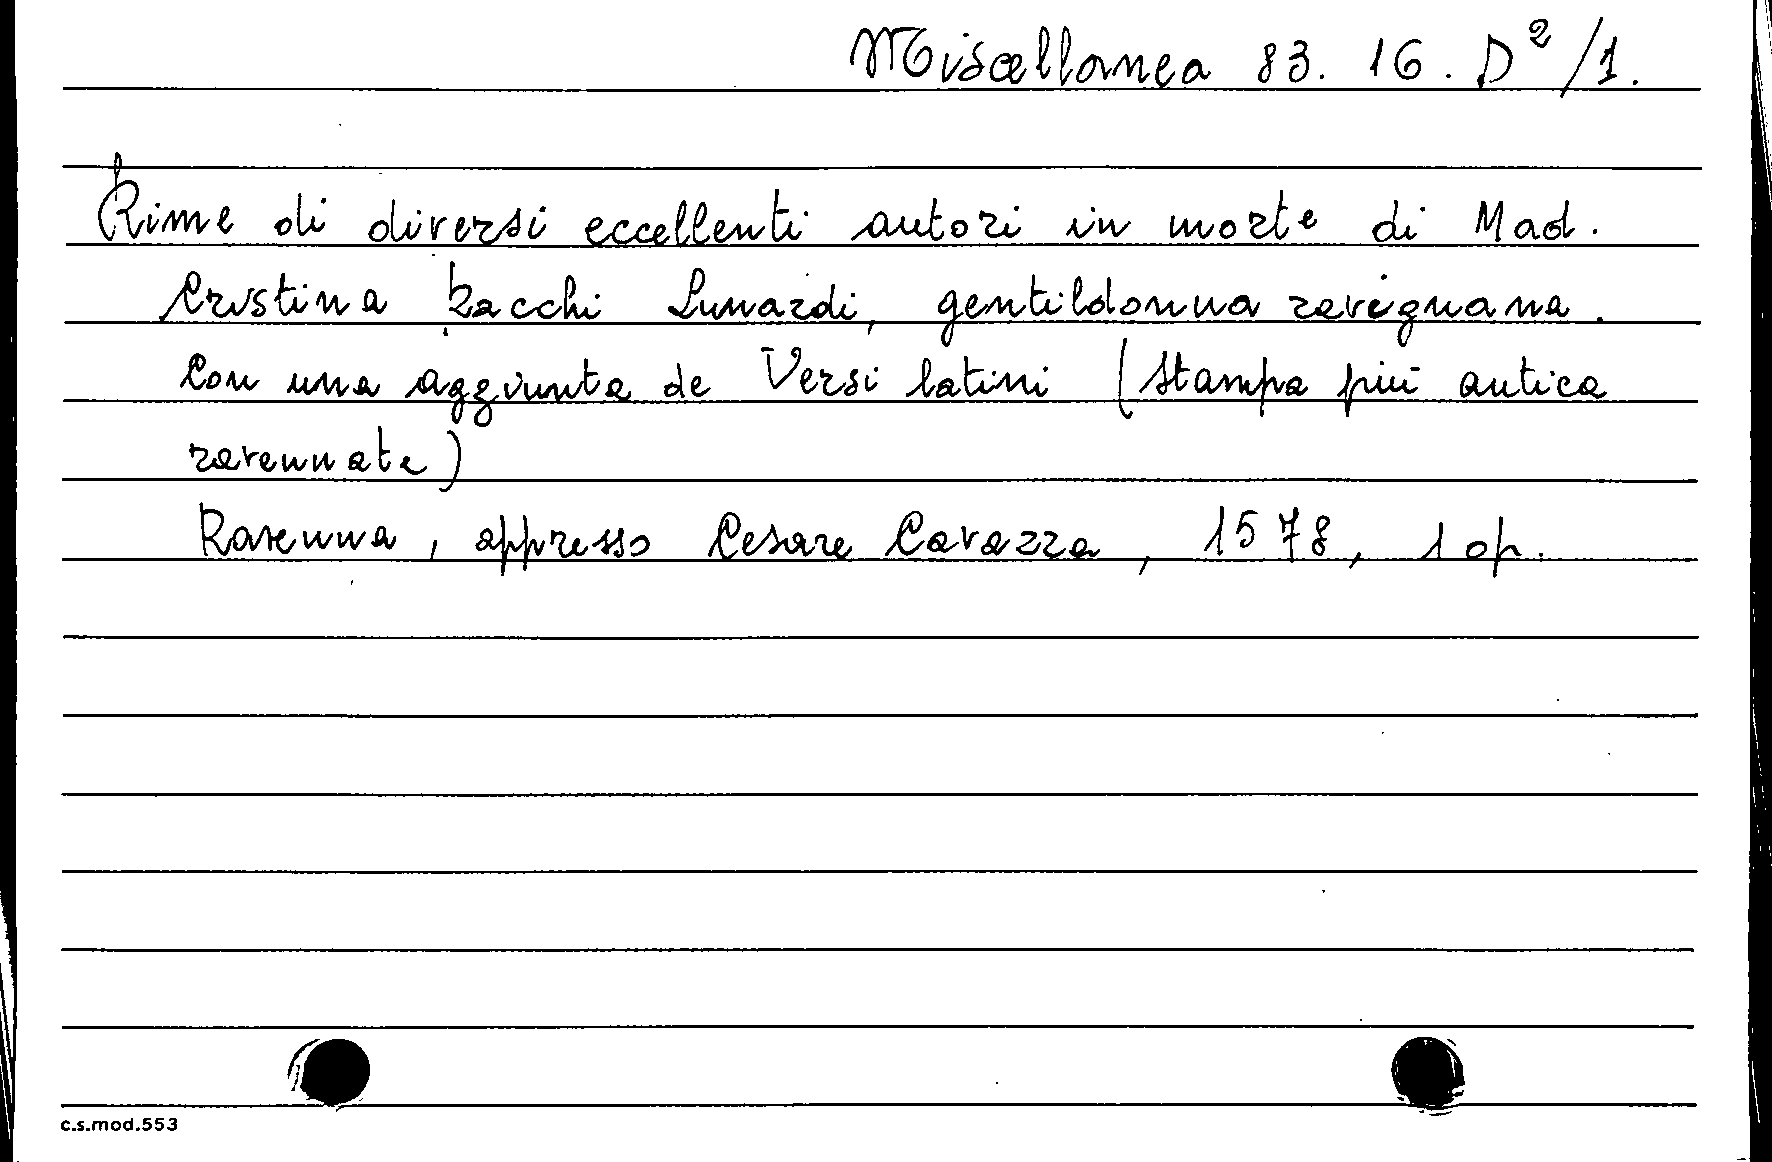 Miscellanea 83. 16. D²/1.
Rime di diversi eccellenti autori in morte di Mad.
Cristina Racchi Lunardi, gentildonna ravignana.
Con una aggiunta de Versi latini (stampa più antica
ravennate)
Ravenna, appresso Cesare Cavazza, 1578, 1 op.
c.s.mod.553